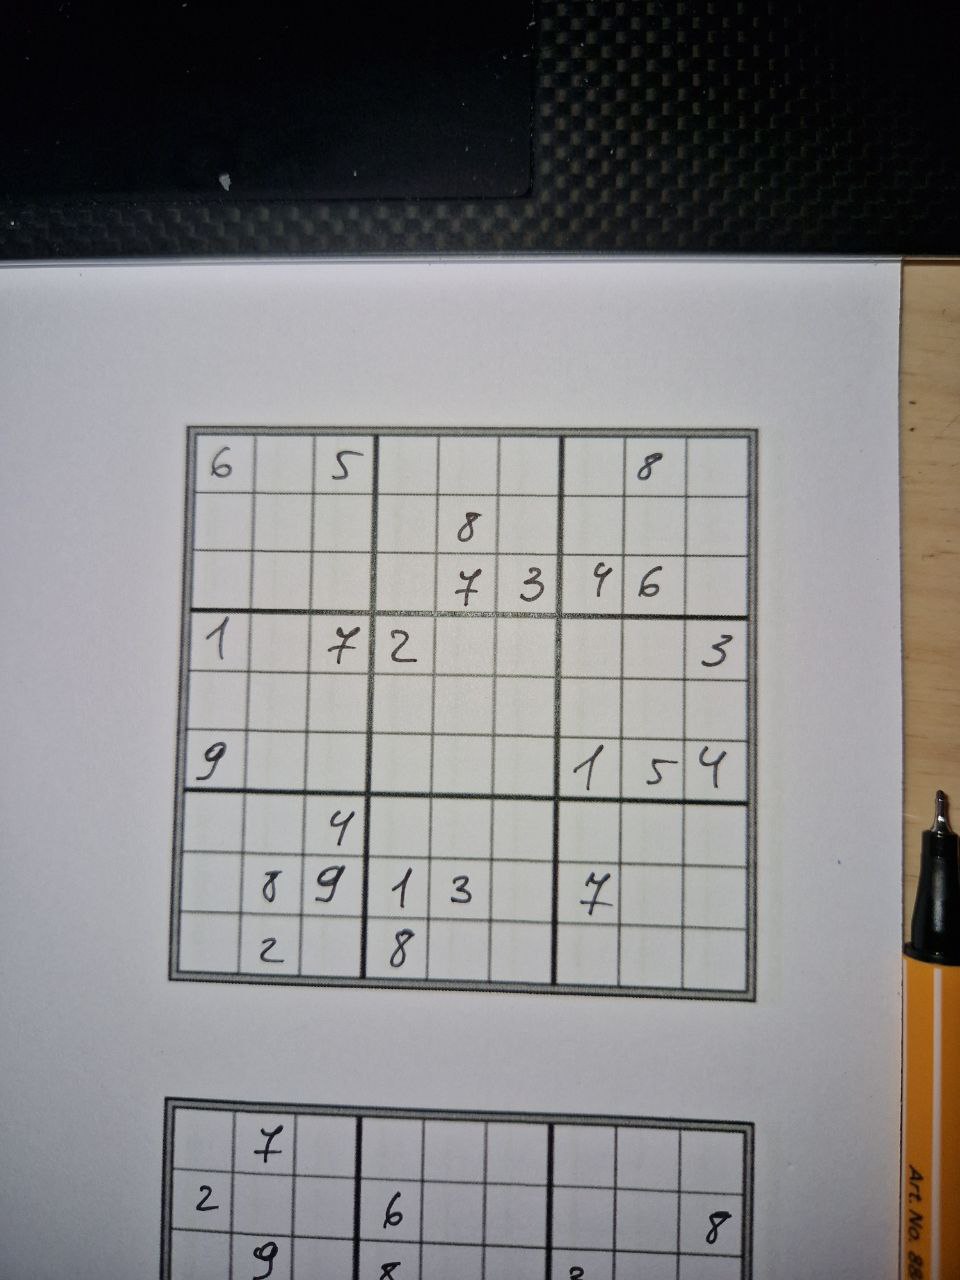 6 5 8
8
7 3 4 6
1 7 2 3
9 1 5 4
4
8 9 1 3 7
2 8
7
2 6 8
9
Art. No. 88